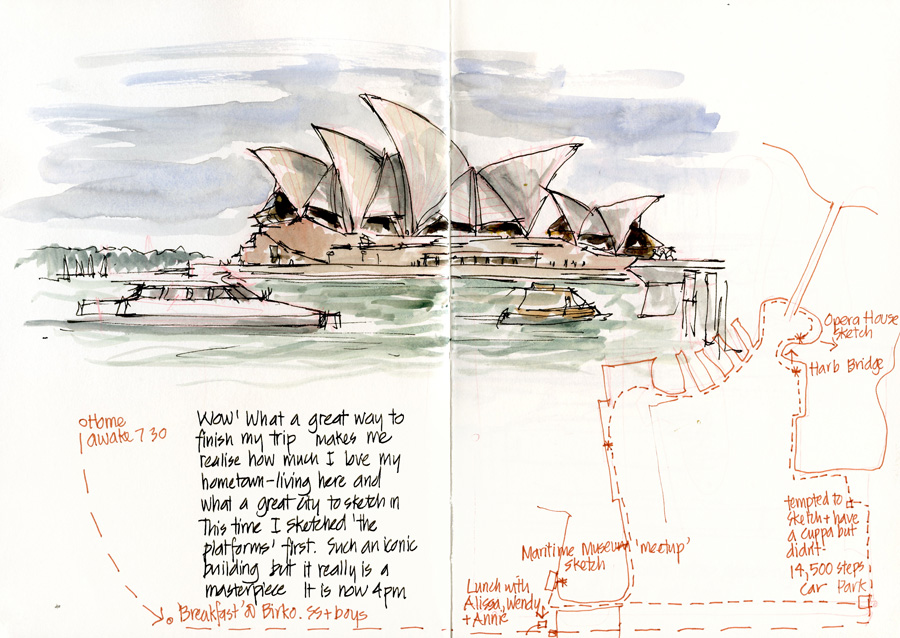 Home
awake 7 30
Wow! What a great way to
finish my trip makes me
realise how much I love my
hometown-living here and
what a great city to sketch in
This time I sketched 'the
platforms' first. Such an iconic
building but it really is a
masterpiece It is now 4pm
Breakfast @ Birko. SS + boys
Lunch with
Alissa, Wendy
+ Annie
Maritime Museum 'meetup'
sketch
Opera House
sketch
Harb Bridge
tempted to
sketch + have
a cuppa but
didn't
14,500 steps
Car Park